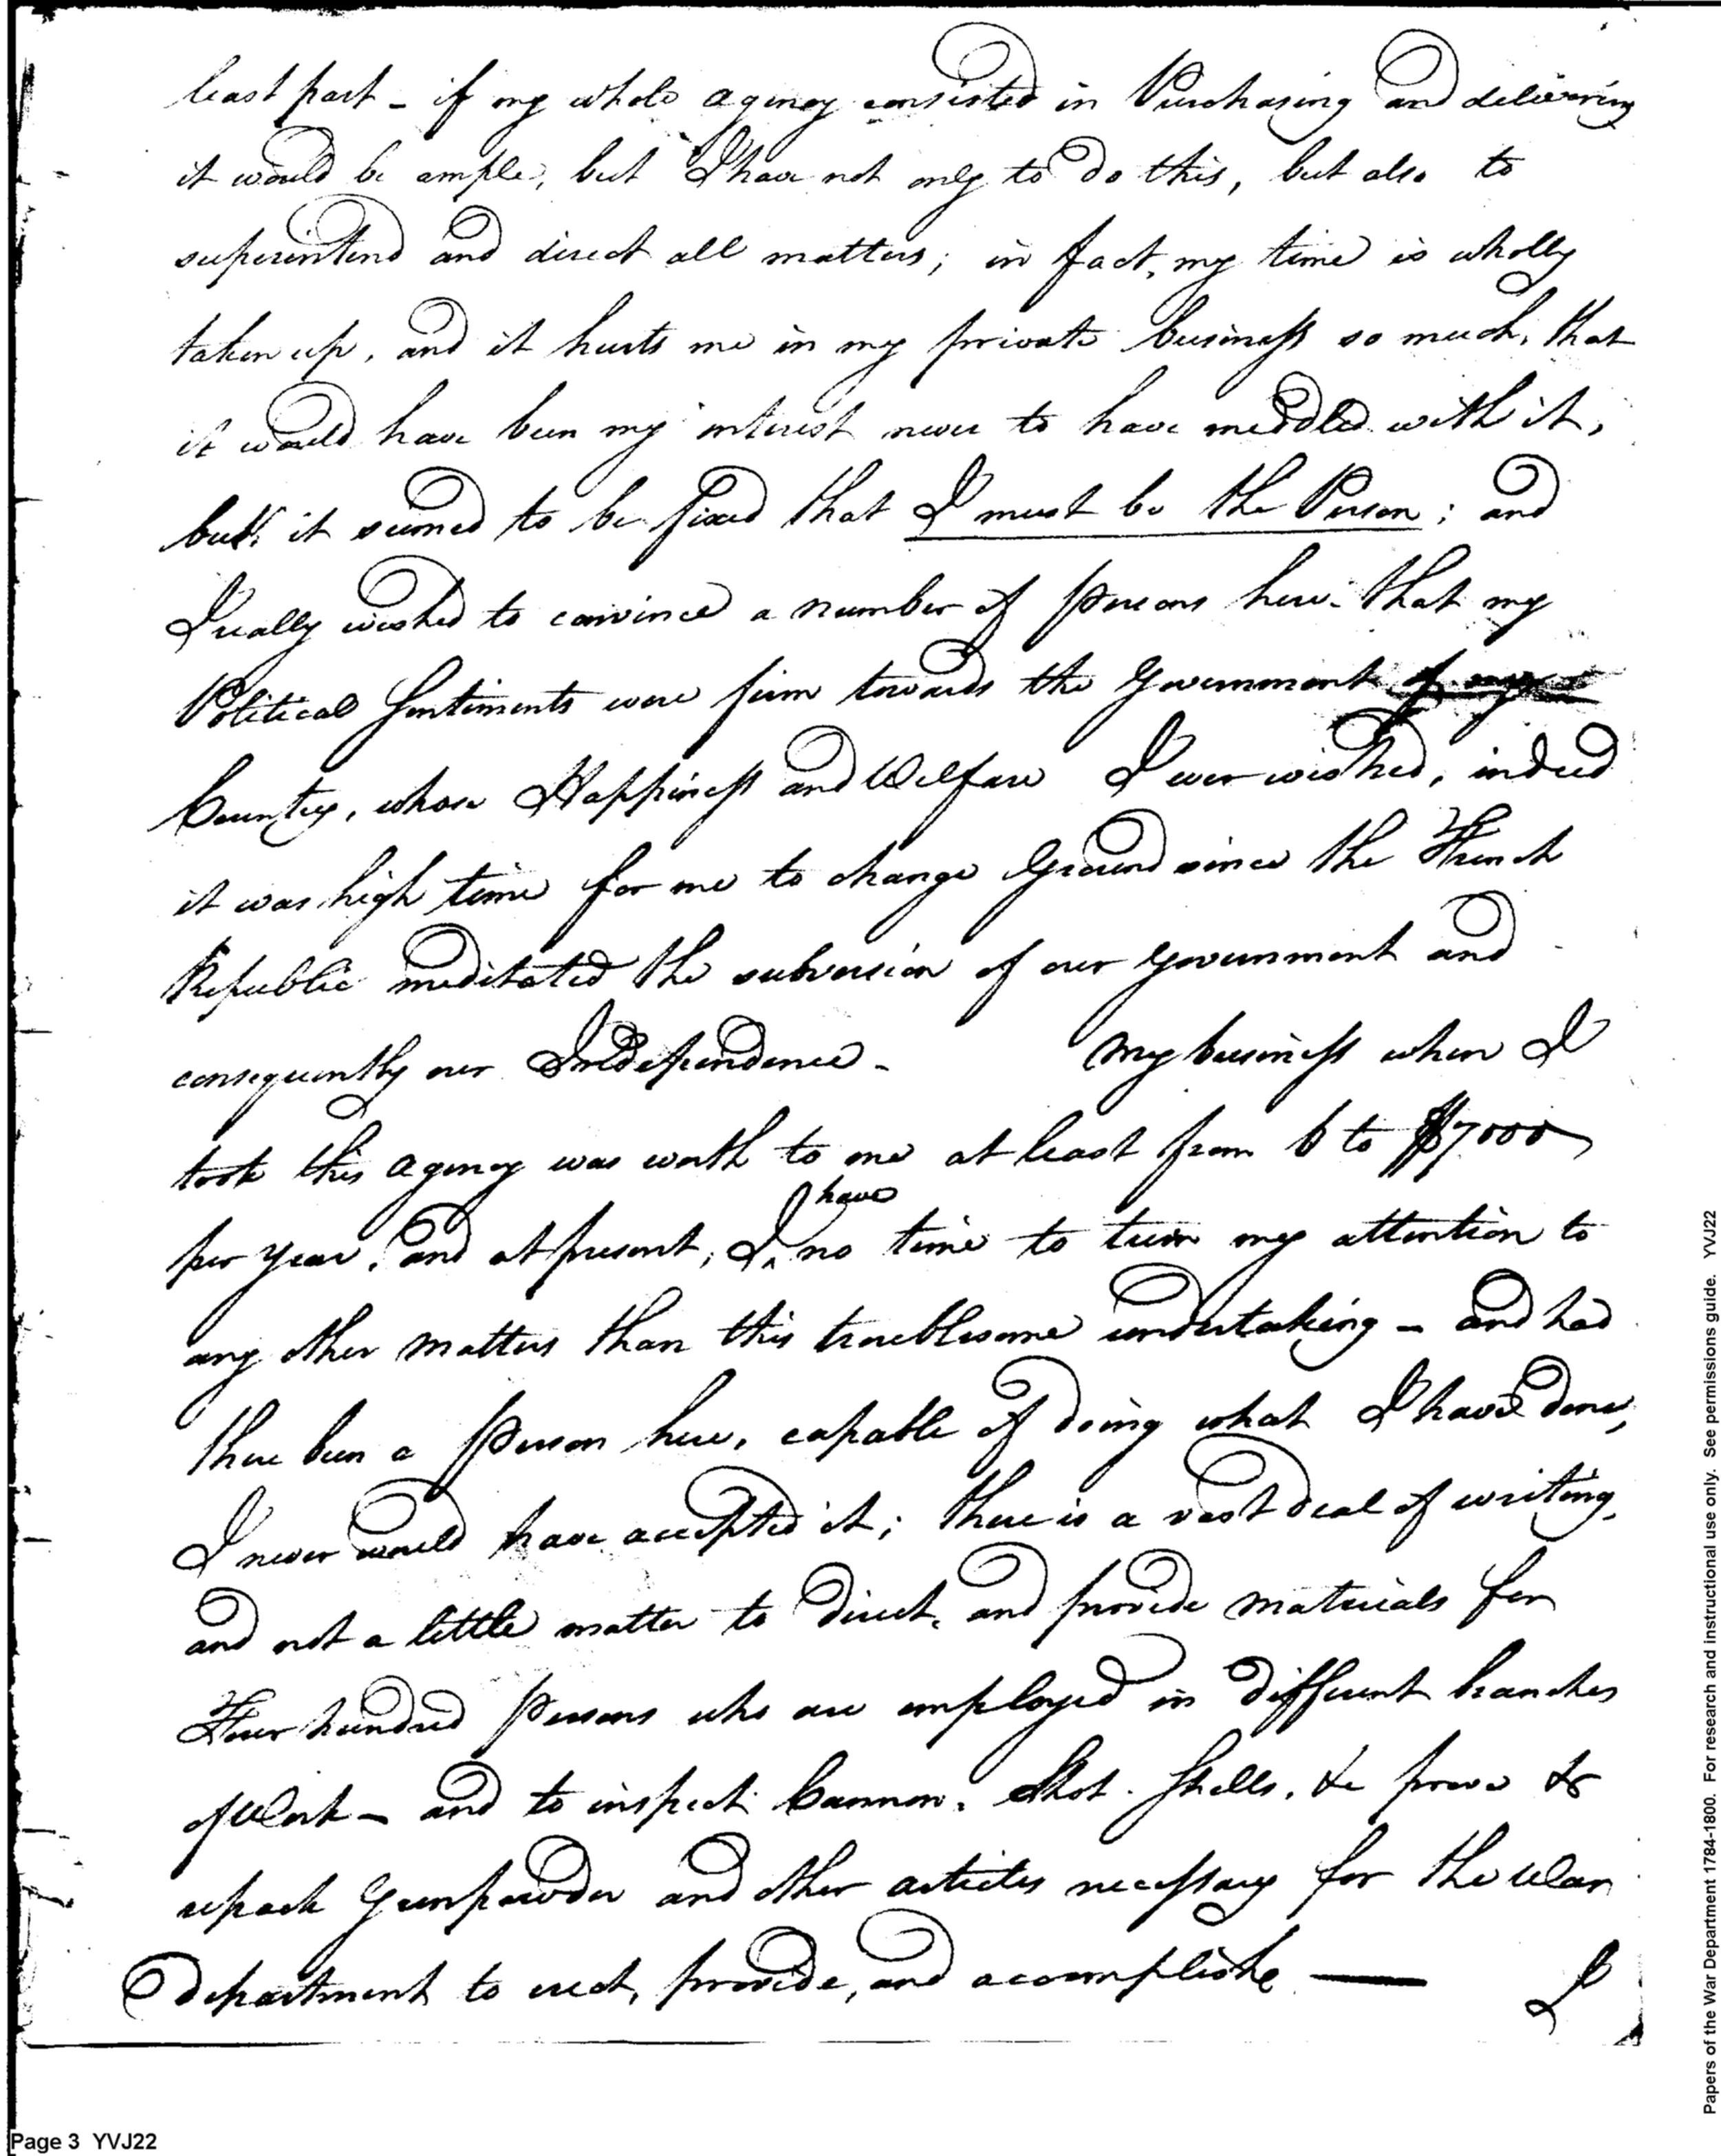 least part - if my whole agency consisted in Purchasing and delivering
it would be ample, but I have not only to do this, but also to
superintend and direct all matters; in fact, my time is wholly
taken up, and it hurts me in my private business so much, that
it would have been my interest never to have meddled with it,
but it seemed to be fixed that I must be the Person; and
I really wished to convince a number of Persons here that my
Political Sentiments were firm towards the Government of my
Country, whose Happiness and Welfare I ever wished, indeed
it was high time for me to change Ground since the French
Republic meditated the subversion of our government and
consequently our Independence - My business when I
took this agency was worth to me at least from 6 to $7000
have
per year, and at present, I ^ no time to turn my attention to
any other matters than this troublesome undertaking - and had
there been a Person here, capable of doing what I have done,
I never would have accepted it; there is a vast deal of writing,
and not a little matter to direct, and provide materials for
Four hundred Persons who are employed in different branches
of Work - and to inspect Cannon, Shot. Shells, &c prove &
repack Gunpowder and other articles necessary for the War
Department to erect, provide, and accomplish — I
Page 3 YVJ22
Papers of the War Department 1784-1800. For research and instructional use only. See permissions guide. YVJ22